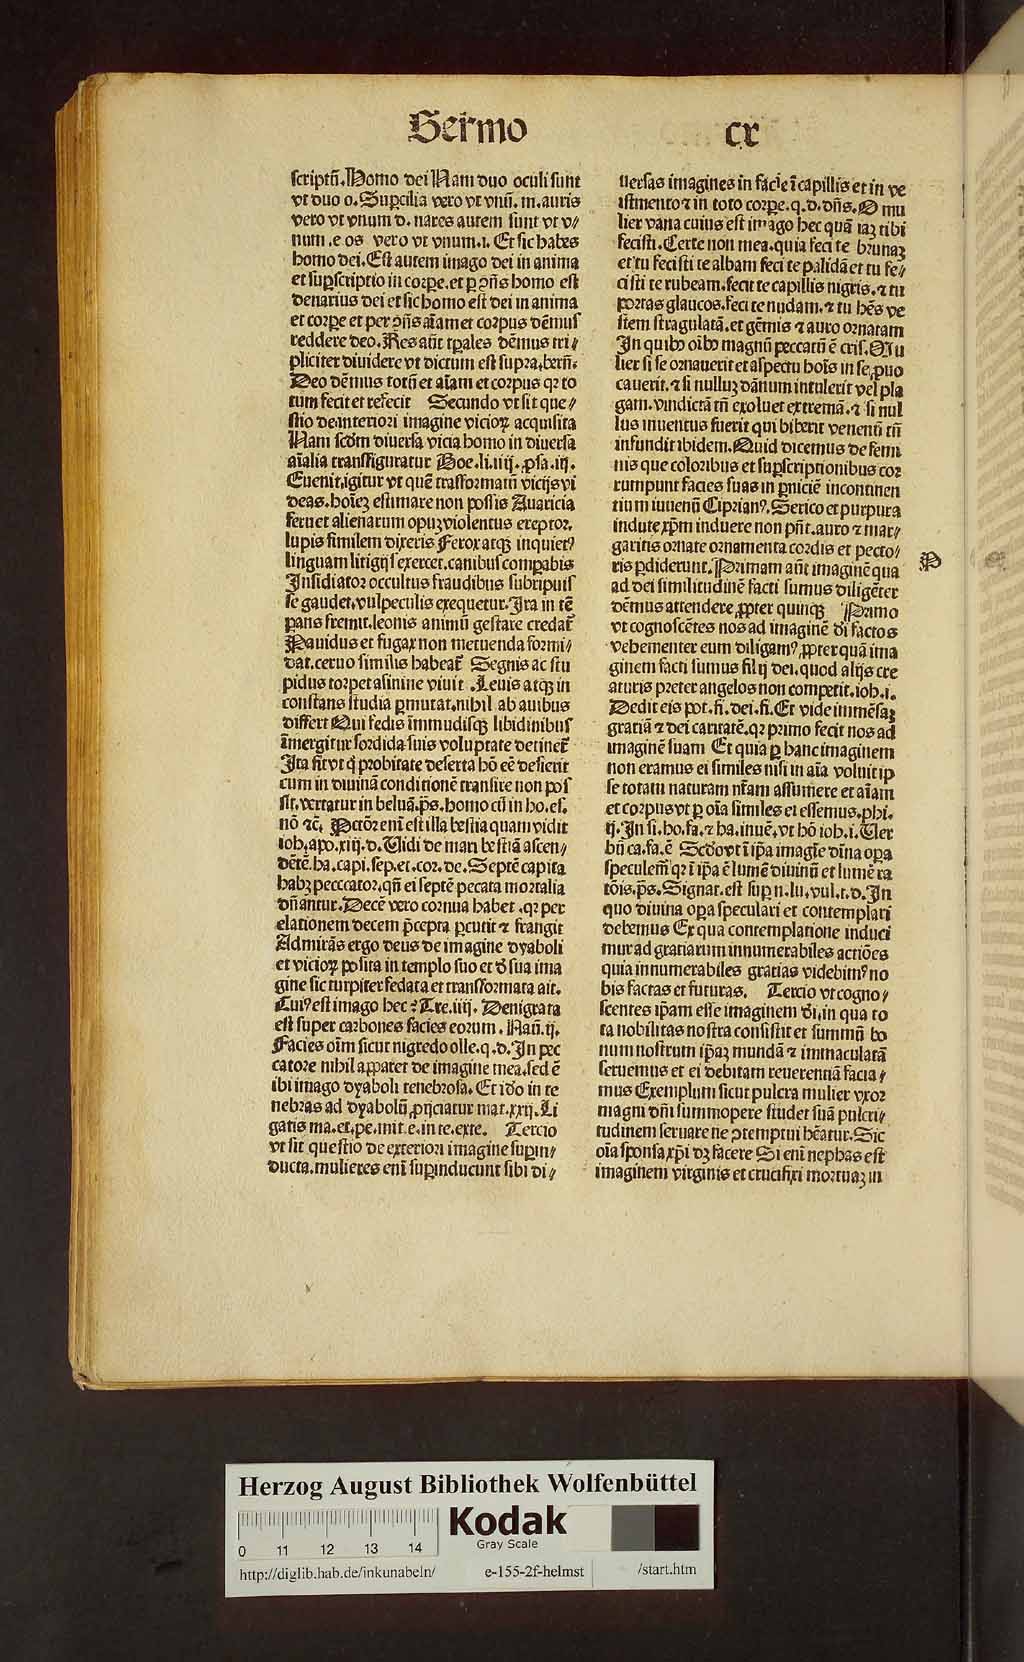 Sermo
cx
scriptũ. Homo dei Nam duo oculi sunt
vt duo o. Supcilia vero vt vnũ. m. auris
vero vt vnum d. nares autem sunt vt v⸗
num .e os vero vt vnum .i. Et sic habes
homo dei. Est autem imago dei in anima
et supscriptio in corpe. et p ꝯñs homo est
denarius dei et sic homo est dei in anima
et corpe et per ꝯñs aĩam et corpus dẽmus
reddere deo. Res aũt tpales dẽmus tri⸗
pliciter diuidere vt dictum est supra. bern̄.
Deo dẽmus totũ et aĩam et corpus qꝛ to
tum fecit et refecit Secundo vt sit que⸗
stio de interiori imagine vicioꝝ acquisita
Nam scd̃m diuersa vicia homo in diuersa
aĩalia transfiguratur Boe. li. iiij. ꝓsa. iij.
Euenit igitur vt quẽ trãsformatũ vicijs vi
deas. hoĩeꝫ estimare non possis Auaricia
feruet alienarum opuꝫ violentus ereptor.
lupis similem dixeris Ferox atqꝫ inquiet⁹
linguam litigijs exercet. canibus compabis
Insidiator occultus fraudibus subripuis
se gaudet. vulpeculis exequetur. Ira in tẽ
pans fremit. leonis animũ gestare credat̃
Pauidus et fugax non metuenda formi⸗
dat. ceruo similis habeat̃ Segnis ac stu
pidus torpet asinine viuit. Leuis atqꝫ in
constans studia pmutat. nihil ab auibus
differt Qui fedis ĩmmudisqꝫ libidinibus
ĩmergitur sordida suis voluptate detinet̃
Ita fit vt ꝙ probitate deserta hõ eẽ desierit
cum in diuinã conditionẽ transire non pos
sit. vertatur in beluã. p̃s. homo cũ in ho. es.
nõ ⁊c̃. Pctõr enĩ est illa bestia quam vidit
ioh. apo. xiij. d. Vidi de mari bestiã ascen⸗
dẽtẽ. ha. capi. sep. et. cor. de. Septẽ capita
habꝫ pecccator. qñ ei septẽ pecata mortalia
dñantur. Decẽ vero cornua habet. qꝛ per
elationem decem p̃cepta pcutit ⁊ frangit
Admirãs ergo deus de imagine dyaboli
et vicioꝝ posita in templo suo et ꝺ̃ sua ima
gine sic turpiter fedata et transformata ait.
Cui⁹ est imago hec? Tre. iiij. Denigrata
est super carbones facies eorum. Naũ. ij.
Facies oĩm sicut nigredo olle. q. d. In pec
catore nihil apparet de imagine mea. sed ẽ
ibi imago dyaboli tenebrosa. Et iđo in te
nebras ad dyabolũ ꝓijciatur mat. xxij. Li
gatis ma. et. pe. mit. e. in te. exte. Tercio
vt sit questio de exteriori imagine supin⸗
ducta. mulieres enĩ supinducunt sibi di⸗
uersas imagines in facie ĩ capillis et in ve
istmento ⁊ in toto corpe. q. d. dñs. O mu
lier vana cuius est imago hec quã iaꝫ tibi
fecisti. Certe non mea. quia feci te brunaꝫ
et tu fecisti te albam feci te palidã et tu fe⸗
cisti te rubeam. feci te capillis nigris. ⁊ tu
portas glaucos. feci te nudam. ⁊ tu hẽs ve
stem stragulatã. et gẽmis ⁊ auro ornatam
In quibꝰ oĩbꝰ magnũ peccatũ ẽ cris. Mu
lier si se ornauerit et aspectu hoĩs in se ꝓuo
cauerit. ⁊ si nulluꝫ dãnum intulerit vel pla
gam. vindictã tñ exoluet extremã. ⁊ si nul
lus inuentus fuerit qui biberit venenũ tñ
infundit ibidem. Quid dicemus de femi
nis que coloribus et supscriptionibus cor
rumpunt facies suas in pniciẽ incontinen
tium iuuenũ Ciprian⁹. Serico et purpura
indute xp̃m induere non pñt. auro ⁊ mar⸗
garitis ornate ornamenta cordis et pecto⸗
ris pdiderunt. Primam aũt imaginẽ qua
P
ad dei similitudinẽ facti sumus diligẽter
dẽmus attendere ꝓpter quinqꝫ Primo
vt cognoscẽtes nos ad imaginẽ di factos
vehementer eum diligam⁹. ꝓpter quã ima
ginem facti sumus filij dei. quod alijs cre
aturis preter angelos non competit. ioh. i.
Dedit eis pot. fi. dei. fi. Et vide immẽsaꝫ
gratiã ⁊ dei caritatẽ. qꝛ primo fecit nos ad
imaginẽ suam Et quia p hanc imaginem
non eramus ei similes nisi in aĩa voluit ip
se totam naturam nr̃am assumere et aĩam
et corpus vt p oĩa similes ei essemus. phi.
ij. In si. ho. fa. ⁊ ha. inuẽ. vt hõ ioh. i. Ver
bũ ca. fa. ẽ Scđo vt ĩ ip̃a imagĩe diĩna opa
speculem̃ qꝛ ĩ ip̃a ẽ lumẽ diuinũ et lumẽ ra
tõis. p̃s. Signat. est sup n. lu. vul. t. d. In
quo diuina opa speculari et contemplari
debemus Ex qua contemplatione induci
mur ad gratiarum innumerabiles actiões
quia innumerabiles gratias videbim⁹ no
bis factas et futuras. Tercio vt cogno⸗
scentes ip̃am esse imaginem di. in qua to
ta nobilitas nostra consistit et summũ bo
num nostrum ip̃aꝫ mundã ⁊ immaculatã
seruemus et ei debitam reuerentiã facia⸗
mus Exemplum sicut pulcra mulier vxor
magni dñi summopere studet suã pulcri⸗
tudinem seruare ne ꝯtemptui hẽatur. Sic
oĩa sponsa xp̃i dꝫ facere Si enĩ nephas est
imaginem virginis et crucifixi mortuaꝫ in
Herzog August Bibliothek Wolfenbüttel
0 11 12 13 14
Kodak
Gray Scale
http://diglib.hab.de/inkunabeln/ e-155-2f-helmst /start.htm